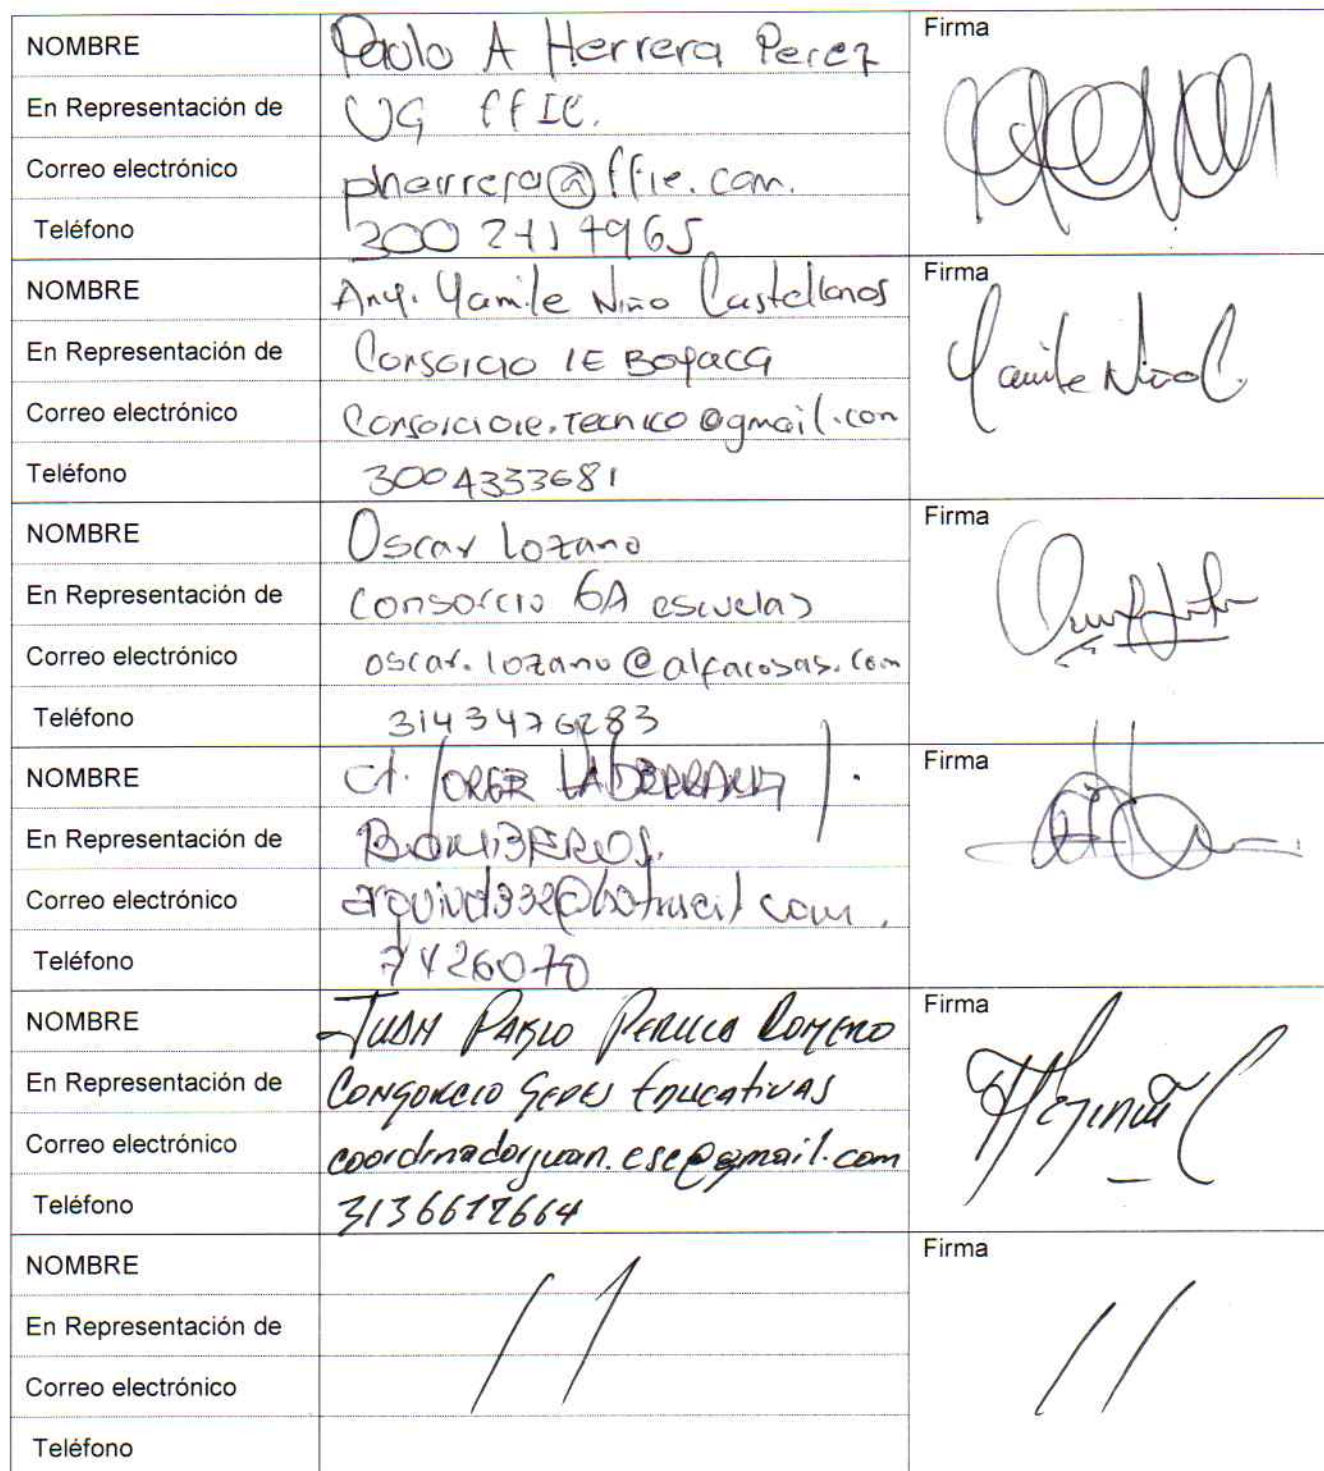 NOMBRE Paolo A Herrera Perez Firma
En Representación de UG ffIE.
Correo electrónico pherrera@ffie.com.
Teléfono 300
NOMBRE Arq. Yamile Niño Castellanos Firma
En Representación de Consorcio IE Boyaca
Correo electrónico Consorcioie.Tecnico@gmail.com Yamile Niño C.
Teléfono 3004333681
NOMBRE Oscar Lozano Firma
En Representación de Consorcio 6A escuelas
Correo electrónico oscar.lozano@alfacosas.com
Teléfono 3143476283
NOMBRE Ct. JORGE Firma
En Representación de BOMBEROS.
Correo electrónico
Teléfono 7426070
NOMBRE JUAN PABLO ROMERO Firma
En Representación de CONSORCIO SEDES EDUCATIVAS
Correo electrónico coordinadorjuan.ese@gmail.com
Teléfono 3136617664
NOMBRE Firma
En Representación de
Correo electrónico
Teléfono